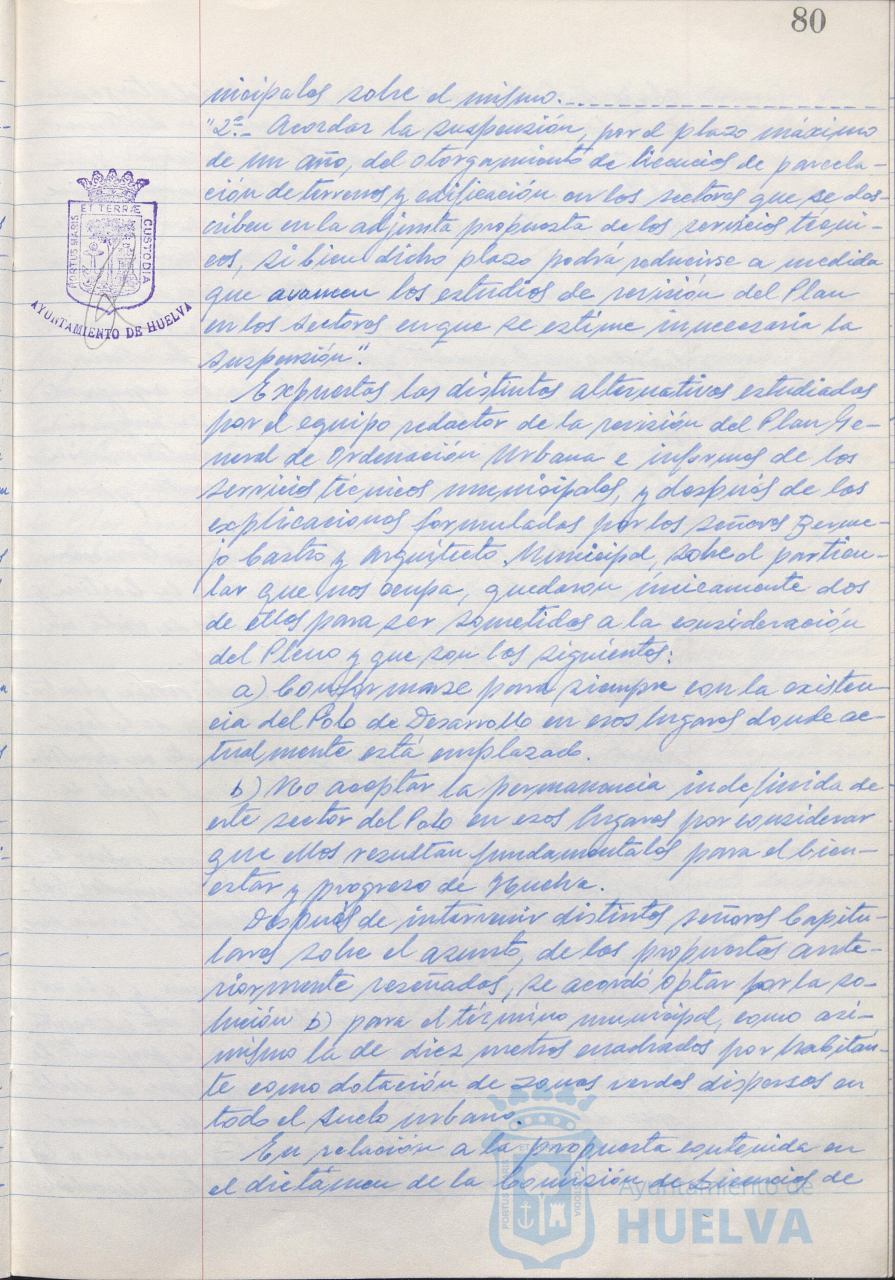 80
nicipales sobre el mismo.
"2º.- Acordar la suspensión, por el plazo máximo
de un año, del otorgamiento de licencias de parcela-
ción de terrenos y edificación en los sectores que se des-
criben en la adjunta propuesta de los servicios técni-
cos, si bien dicho plazo podrá reducirse a medida
que avancen los estudios de revisión del Plan
en los sectores en que se estime innecesaria la
suspensión".
Expuestas las distintas alternativas estudiadas
por el equipo redactor de la revisión del Plan Ge-
neral de Ordenación Urbana e informes de los
servicios técnicos municipales, y después de las
explicaciones formuladas por los señores Berme-
jo Castro y Arquitecto Municipal, sobre el particu-
lar que nos ocupa, quedaron únicamente dos
de ellas para ser sometidas a la consideración
del Pleno y que son las siguientes:
a) Conformarse para siempre con la existen-
cia del Polo de Desarrollo en esos lugares donde ac-
tualmente está emplazado.
b) No aceptar la permanencia indefinida de
este sector del Polo en esos lugares por considerar
que ellos resultan fundamentales para el bien-
estar y progreso de Huelva.
Después de intervenir distintos señores Capitu-
lares sobre el asunto, de las propuestas ante-
riormente reseñadas, se acordó optar por la so-
lución b) para el término municipal, como asi-
mismo la de diez metros cuadrados por habitan-
te como dotación de zonas verdes dispersas en
todo el suelo urbano.
En relación a la propuesta contenida en
el dictámen de la Comisión de Licencias de
PORTUS MARIS
ET TERRÆ
CUSTODIA
AYUNTAMIENTO DE HUELVA
PORTUS
CUSTODIA
Ayuntamiento de
HUELVA